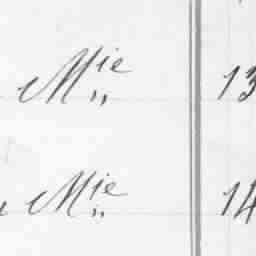 Mie 13
Mie 14